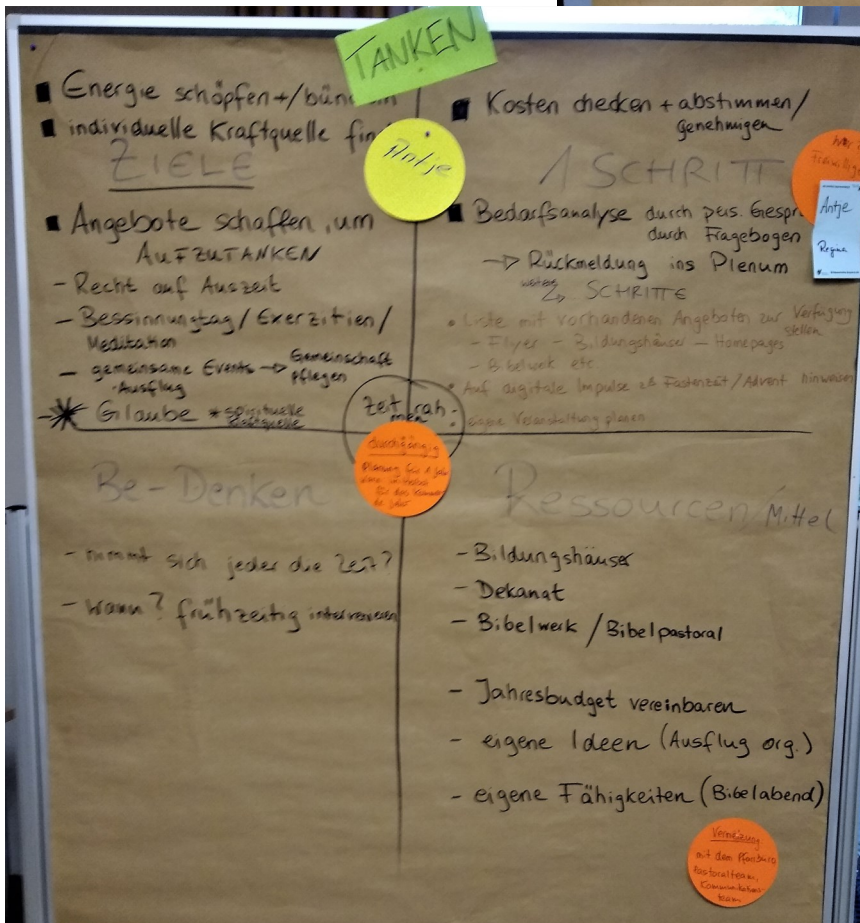 TANKEN
Antje
■ Energie schöpfen +/
■ individuelle Kraftquelle
ZIELE
■ Angebote schaffen, um
AUFZUTANKEN
- Recht auf Auszeit
- Bessinnungtag / Exerzitien /
Meditation
- gemeinsame Events → Gemeinschaft
pflegen
-Ausflug
* Glaube * spirituelle
Kraftquelle
■ Kosten checken + abstimmen /
genehmigen
1 SCHRITT
■ Bedarfsanalyse durch pers.
durch Fragebogen
→ Rückmeldung ins Plenum
weitere
↳ SCHRITTE
• Liste mit vorhandenen Angeboten zur Verfügung
stellen
- Flyer - Bildungshäuser - Homepages
- Bibelwek etc
• Auf digitale Impulse zB Fastenzeit / Advent hinweisen
• eigene Veranstaltung planen
Antje
Regine
Zeitrah-
men
durchgängig
Planung für 1 Jahr
Be-Denken
- nimmt sich jeder die Zeit?
- Wann? frühzeitig intervenieren
Ressourcen/Mittel
- Bildungshäuser
- Dekanat
- Bibelwerk / Bibelpastoral
- Jahresbudget vereinbaren
- eigene Ideen (Ausflug org.)
- eigene Fähigkeiten (Bibelabend)
Vernetzung
mit dem Pfarrbüro
Pastoralteam,
Kommunikations-
team